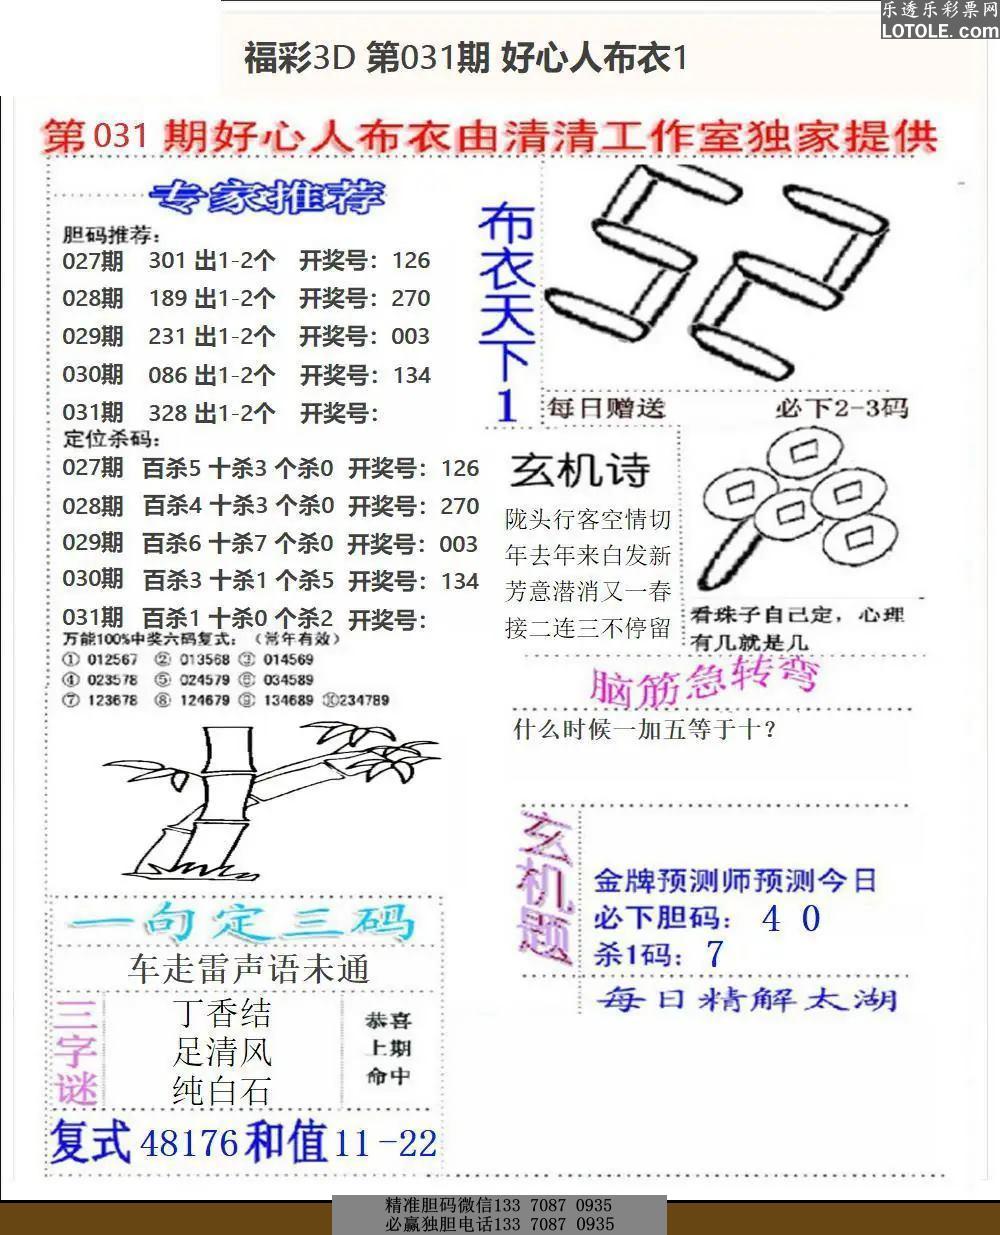 乐透乐彩票网
LOTOLE.com
福彩3D 第031期 好心人布衣1
第031期好心人布衣由清清工作室独家提供
专家推荐
胆码推荐：
027期 301 出1-2个 开奖号：126
028期 189 出1-2个 开奖号：270
029期 231 出1-2个 开奖号：003
030期 086 出1-2个 开奖号：134
031期 328 出1-2个 开奖号：
定位杀码：
027期 百杀5 十杀3 个杀0 开奖号：126
028期 百杀4 十杀3 个杀0 开奖号：270
029期 百杀6 十杀7 个杀0 开奖号：003
030期 百杀3 十杀1 个杀5 开奖号：134
031期 百杀1 十杀0 个杀2 开奖号：
万能100%中奖六码复式：（常年有效）
① 012567 ② 013568 ③ 014569
④ 023578 ⑤ 024579 ⑥ 034589
⑦ 123678 ⑧ 124679 ⑨ 134689 ⑩234789
一句定三码
车走雷声语未通
三字谜
丁香结
足清风
纯白石
恭喜
上期
命中
复式 48176 和值 11-22
布衣天下1
52
每日赠送 必下2-3码
玄机诗
陇头行客空情切
年去年来白发新
芳意潜消又一春
接二连三不停留
看珠子自己定，心理
有几就是几
脑筋急转弯
什么时候一加五等于十？
玄机题
金牌预测师预测今日
必下胆码： 4 0
杀1码： 7
每日精解太湖
精准胆码微信133 7087 0935
必赢独胆电话133 7087 0935